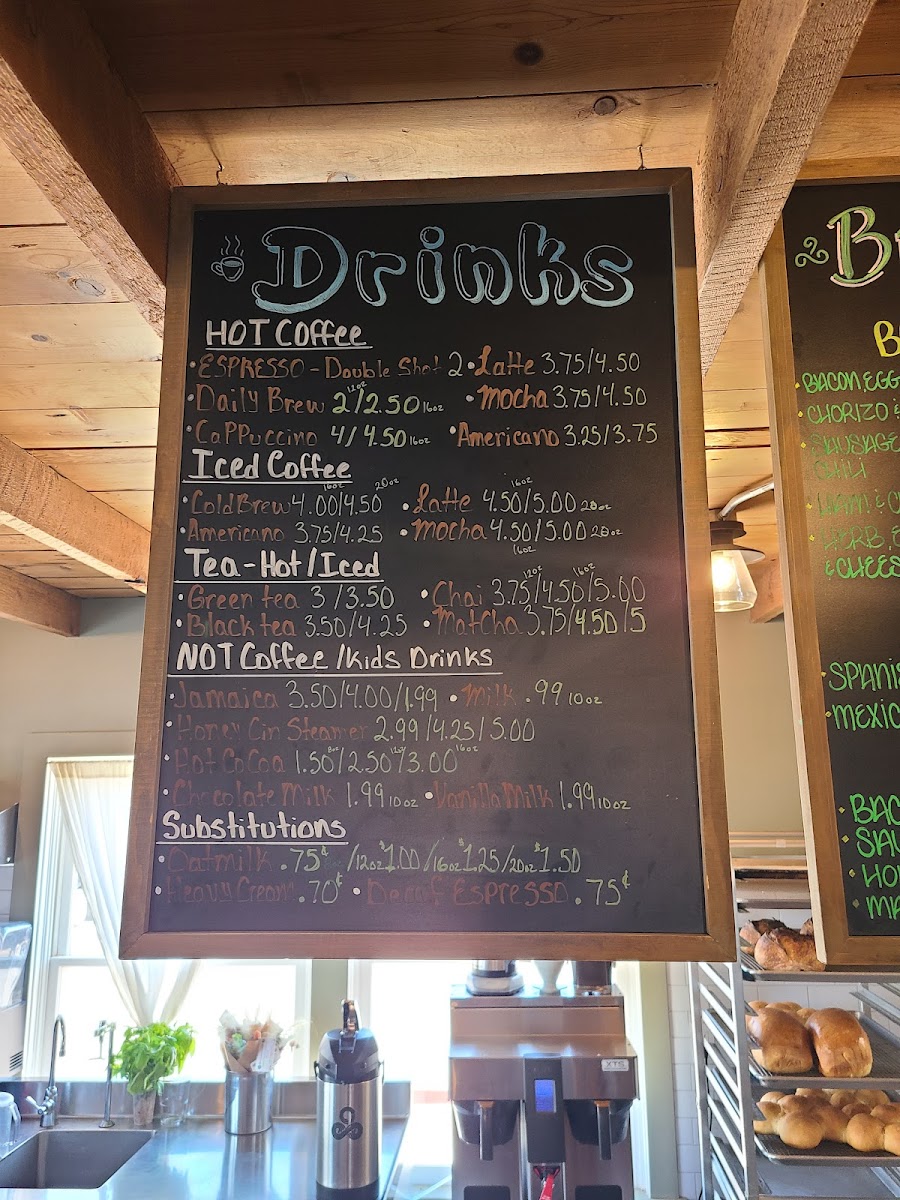 Drinks
HOT Coffee
• ESPRESSO - Double Shot 2 • Latte 3.75/4.50
• Daily Brew 2 12oz / 2.50 16oz • Mocha 3.75/4.50
• Cappuccino 4 / 4.50 16oz • Americano 3.25/3.75
Iced Coffee
• Cold Brew 4.00 16oz / 4.50 20oz • Latte 4.50 16oz / 5.00 20oz
• Americano 3.75/4.25 • Mocha 4.50 16oz / 5.00 20oz
Tea - Hot / Iced
• Green tea 3 / 3.50 • Chai 3.75 12oz / 4.50 16oz / 5.00
• Black tea 3.50/4.25 • Matcha 3.75/4.50/5
NOT Coffee / Kids Drinks
• Jamaica 3.50/4.00/1.99 • Milk .99 10oz
• Honey Cin Steamer 2.99/4.25/5.00
• Hot CoCoa 1.50 8oz / 2.50 12oz / 3.00 16oz
• Chocolate Milk 1.99 10oz • Vanilla Milk 1.99 10oz
Substitutions
• Oatmilk .75¢ / 12oz $1.00 / 16oz $1.25 / 20oz $1.50
• Heavy Cream .70¢ • Decaf Espresso .75¢
• BACON, EGG
• CHORIZO &
• SAUSAGE
CHILI
• HAM & C
& CHEES
• SPANIS
• MEXIC
• BAC
• SAU
• HO
XTS